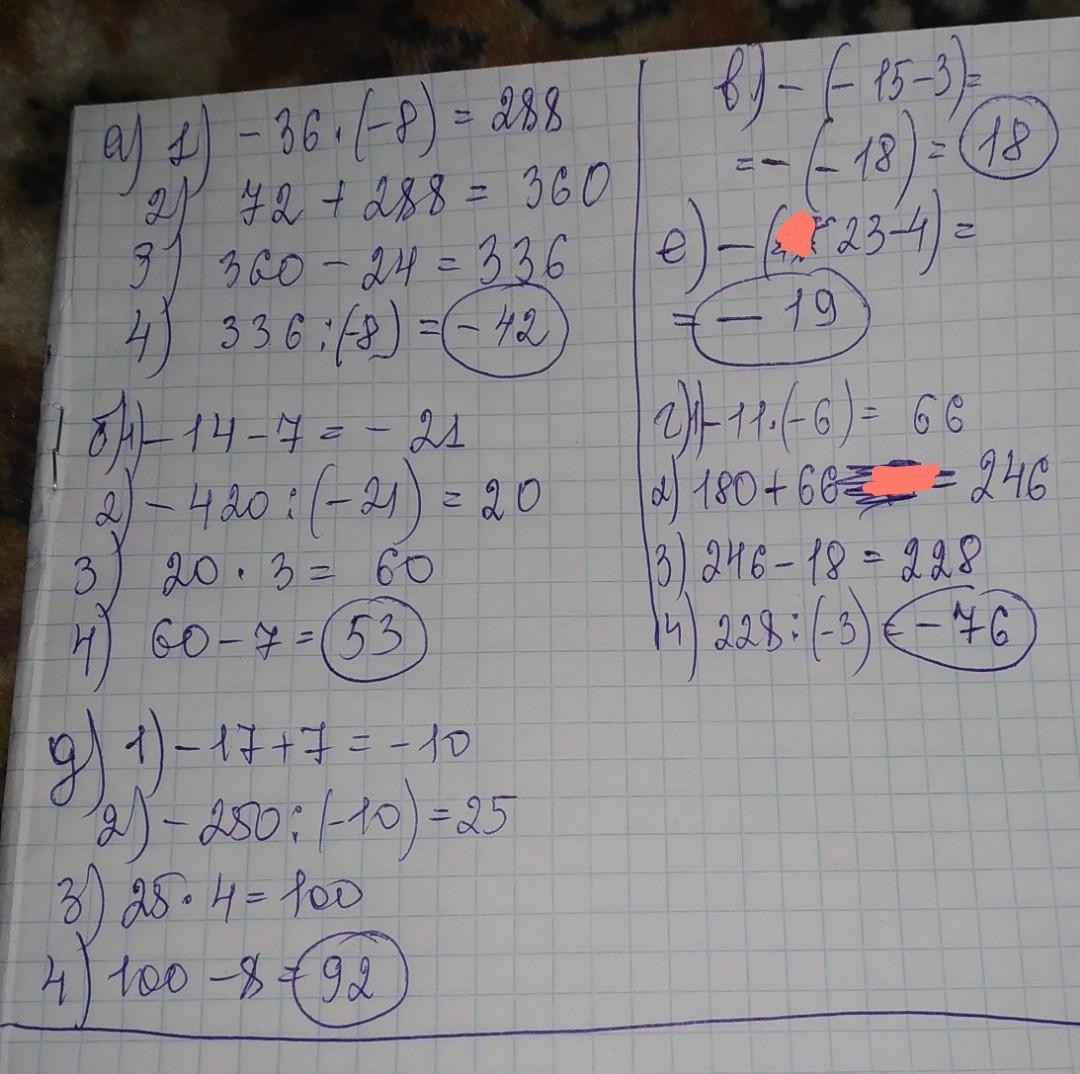 а) 1) - 36 · (-8) = 288
2) 72 + 288 = 360
3) 360 - 24 = 336
4) 336 : (-8) = - 42
б) 1) - 14 - 7 = - 21
2) - 420 : (-21) = 20
3) 20 · 3 = 60
4) 60 - 7 = 53
д) 1) - 17 + 7 = - 10
2) - 250 : (-10) = 25
3) 25 · 4 = 100
4) 100 - 8 = 92
в) - (- 15 - 3) =
= - (- 18) = 18
е) - ( 23 - 4) =
= - 19
г) 1) - 11 · (-6) = 66
2) 180 + 66 = 246
3) 246 - 18 = 228
4) 228 : (-3) = - 76